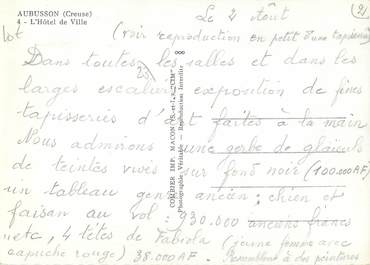 AUBUSSON (Creuse)
4 - L'Hôtel de Ville
Le 2 Août
(voir reproduction en petit d'une tapisserie)
Dans toutes les salles et dans les
larges escaliers exposition de fines
tapisseries d'art faites à la main
Nous admirons une gerbe de glaïeuls
de teintes vives sur fond noir (100.000 AF)
un tableau genre ancien : chien et
faisan au vol : 930.000 anciens francs
etc, 4 têtes de Fabiola (jeune femme avec
capuche rouge) 38.000 AF. Ressemblent à des peintures
COMBIER IMP. MACON (S.-et-L.) "CIM"
Photographie Véritable - Reproduction Interdite